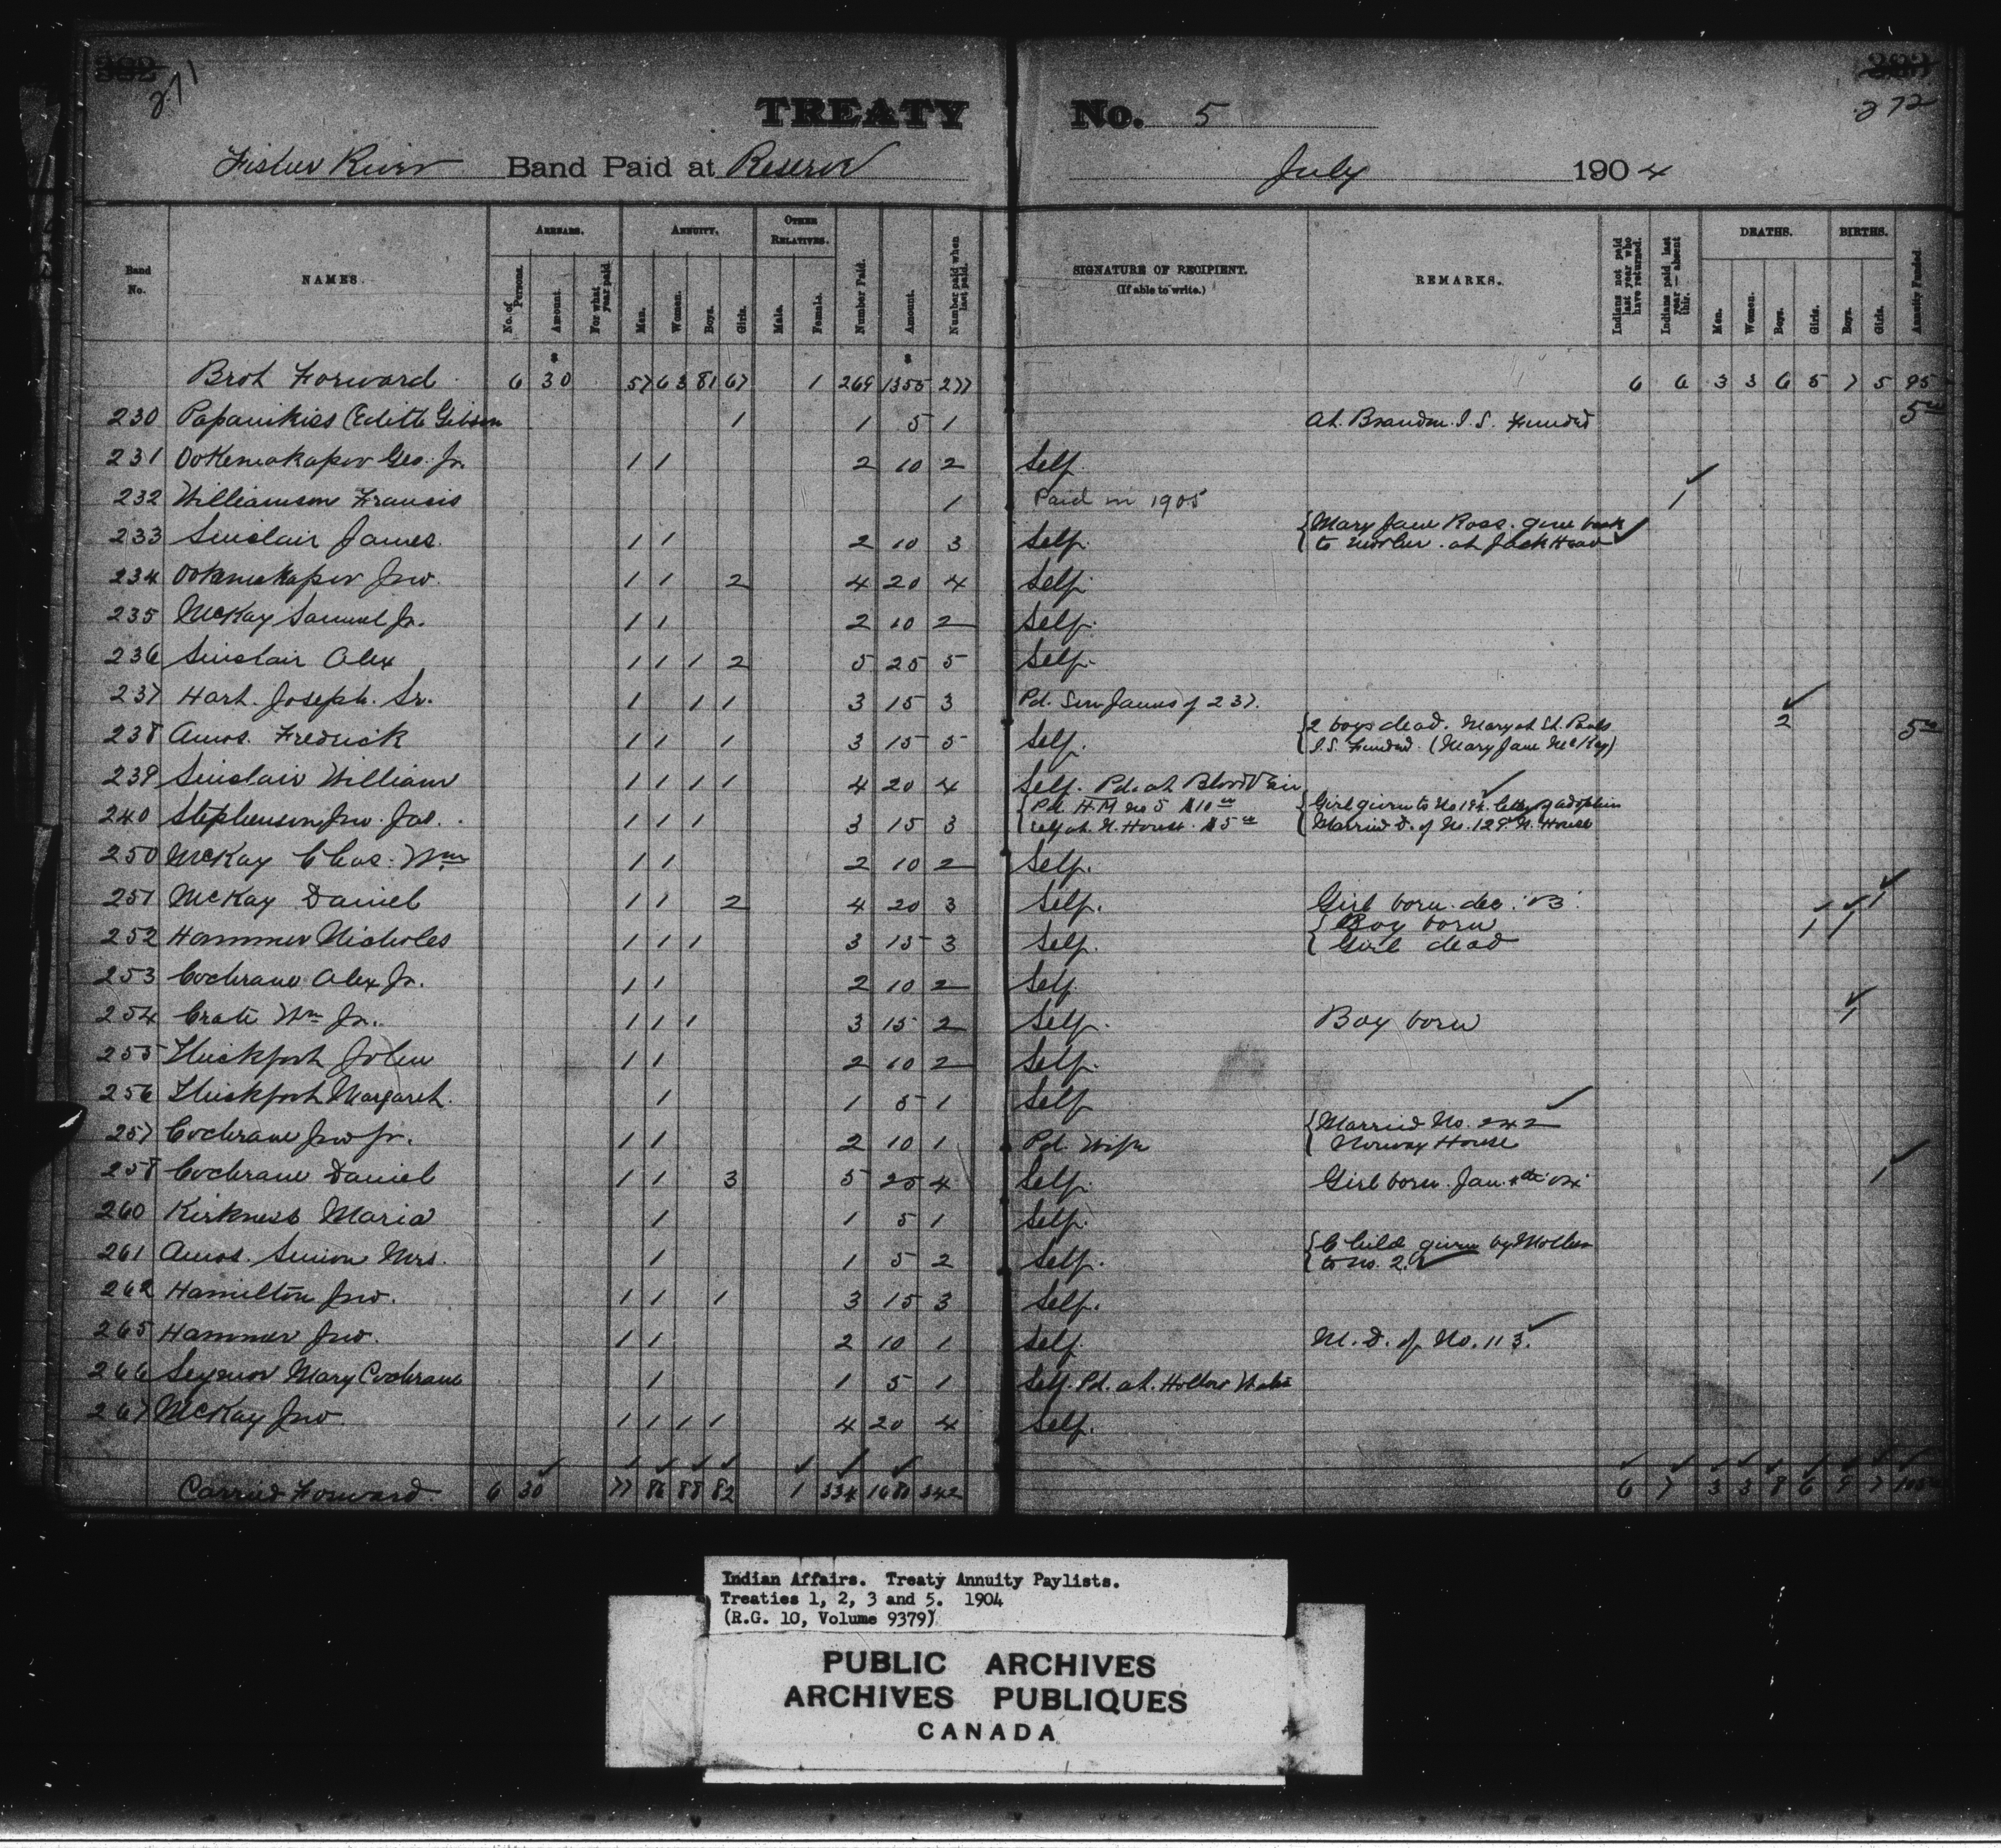 271
272
TREATY No. 5
Fisher River Band Paid at Reserve July 1904
Band No. NAMES. ARREARS. ANNUITY. OTHER RELATIVES. Number Paid. Amount. Number paid when last paid. SIGNATURE OF RECIPIENT. (If able to write.) REMARKS. Indians not paid last year who have returned. Indians paid last year — absent this. DEATHS. BIRTHS. Annuity Funded.
No. of Persons. Amount. For what year paid. Men. Women. Boys. Girls. Male. Female. Men. Women. Boys. Girls. Boys. Girls.
Brot Forward 6 30 57 63 81 67 1 269 1355 277 6 6 3 3 6 5 7 5 95
230 Papanikiss (Edith Gibson 1 1 5 1 At. Brandon I.S. Funded 5
231 Ookemakapow Geo. Jr. 1 1 2 10 2 Self.
232 Williamson Francis 1 Paid in 1905 1
233 Sinclair James. 1 1 2 10 3 Self. {Mary Jane Ross. gone back
{to mother. at Jack Head
234 Ookemakapow Jno. 1 1 2 4 20 4 Self.
235 McKay Samuel Jr. 1 1 2 10 2 Self.
236 Sinclair Alex 1 1 1 2 5 25 5 Self.
237 Hart. Joseph. Sr. 1 1 1 3 15 3 Pd. Son James of 237.
238 Amos. Fredrick 1 1 1 3 15 5 Self. {2 boys dead. Mary at St. Pauls 2 5
{I.S. Funded. (Mary Jane McKay)
239 Sinclair William 1 1 1 1 4 20 4 Self. Pd. at Blood Vein
240 Stephenson Jno. Jas. 1 1 1 3 15 3 {Pd. H.M. No 5 $10 {Girl given to No by adoption
{Self at N. House. $5 {Married D. of No. 129 N. House
250 McKay Chas. Wm. 1 1 2 10 2 Self.
251 McKay Daniel 1 1 2 4 20 3 Self. Girl born. dec. '03. 1
252 Hammer Nicholes 1 1 1 3 15 3 Self. {Boy born 1 1
{Girl dead
253 Cochrane Alex Jr. 1 1 2 10 2 Self
254 Crate Wm Jr. 1 1 1 3 15 2 Self. Boy born 1
255 Thickfoot John 1 1 2 10 2 Self.
256 Thickfoot Margaret. 1 1 5 1 Self
257 Cochrane Jno Jr. 1 1 2 10 1 Pd. Wife {Married No. 242
{Norway House
258 Cochrane Daniel 1 1 3 5 25 4 Self. Girl born. Jan. '04. 1
260 Kirkness Maria 1 1 5 1 Self.
261 Amos. Simon Mrs. 1 1 5 2 Self. {Child given by Mother
{to No. 2.
262 Hamilton Jno. 1 1 1 3 15 3 Self.
265 Hammer Jno. 1 1 2 10 1 Self. M. D. of No. 113.
266 Seymor Mary Cochrane 1 1 5 1 Self. Pd. at. Hollow Water
267 McKay Jno 1 1 1 1 4 20 4 Self.
Carried Forward 6 30 77 86 88 82 1 334 1680 342 6 7 3 3 8 6 9 7 105
Indian Affairs. Treaty Annuity Paylists.
Treaties 1, 2, 3 and 5. 1904
(R.G. 10, Volume 9379)
PUBLIC ARCHIVES
ARCHIVES PUBLIQUES
CANADA